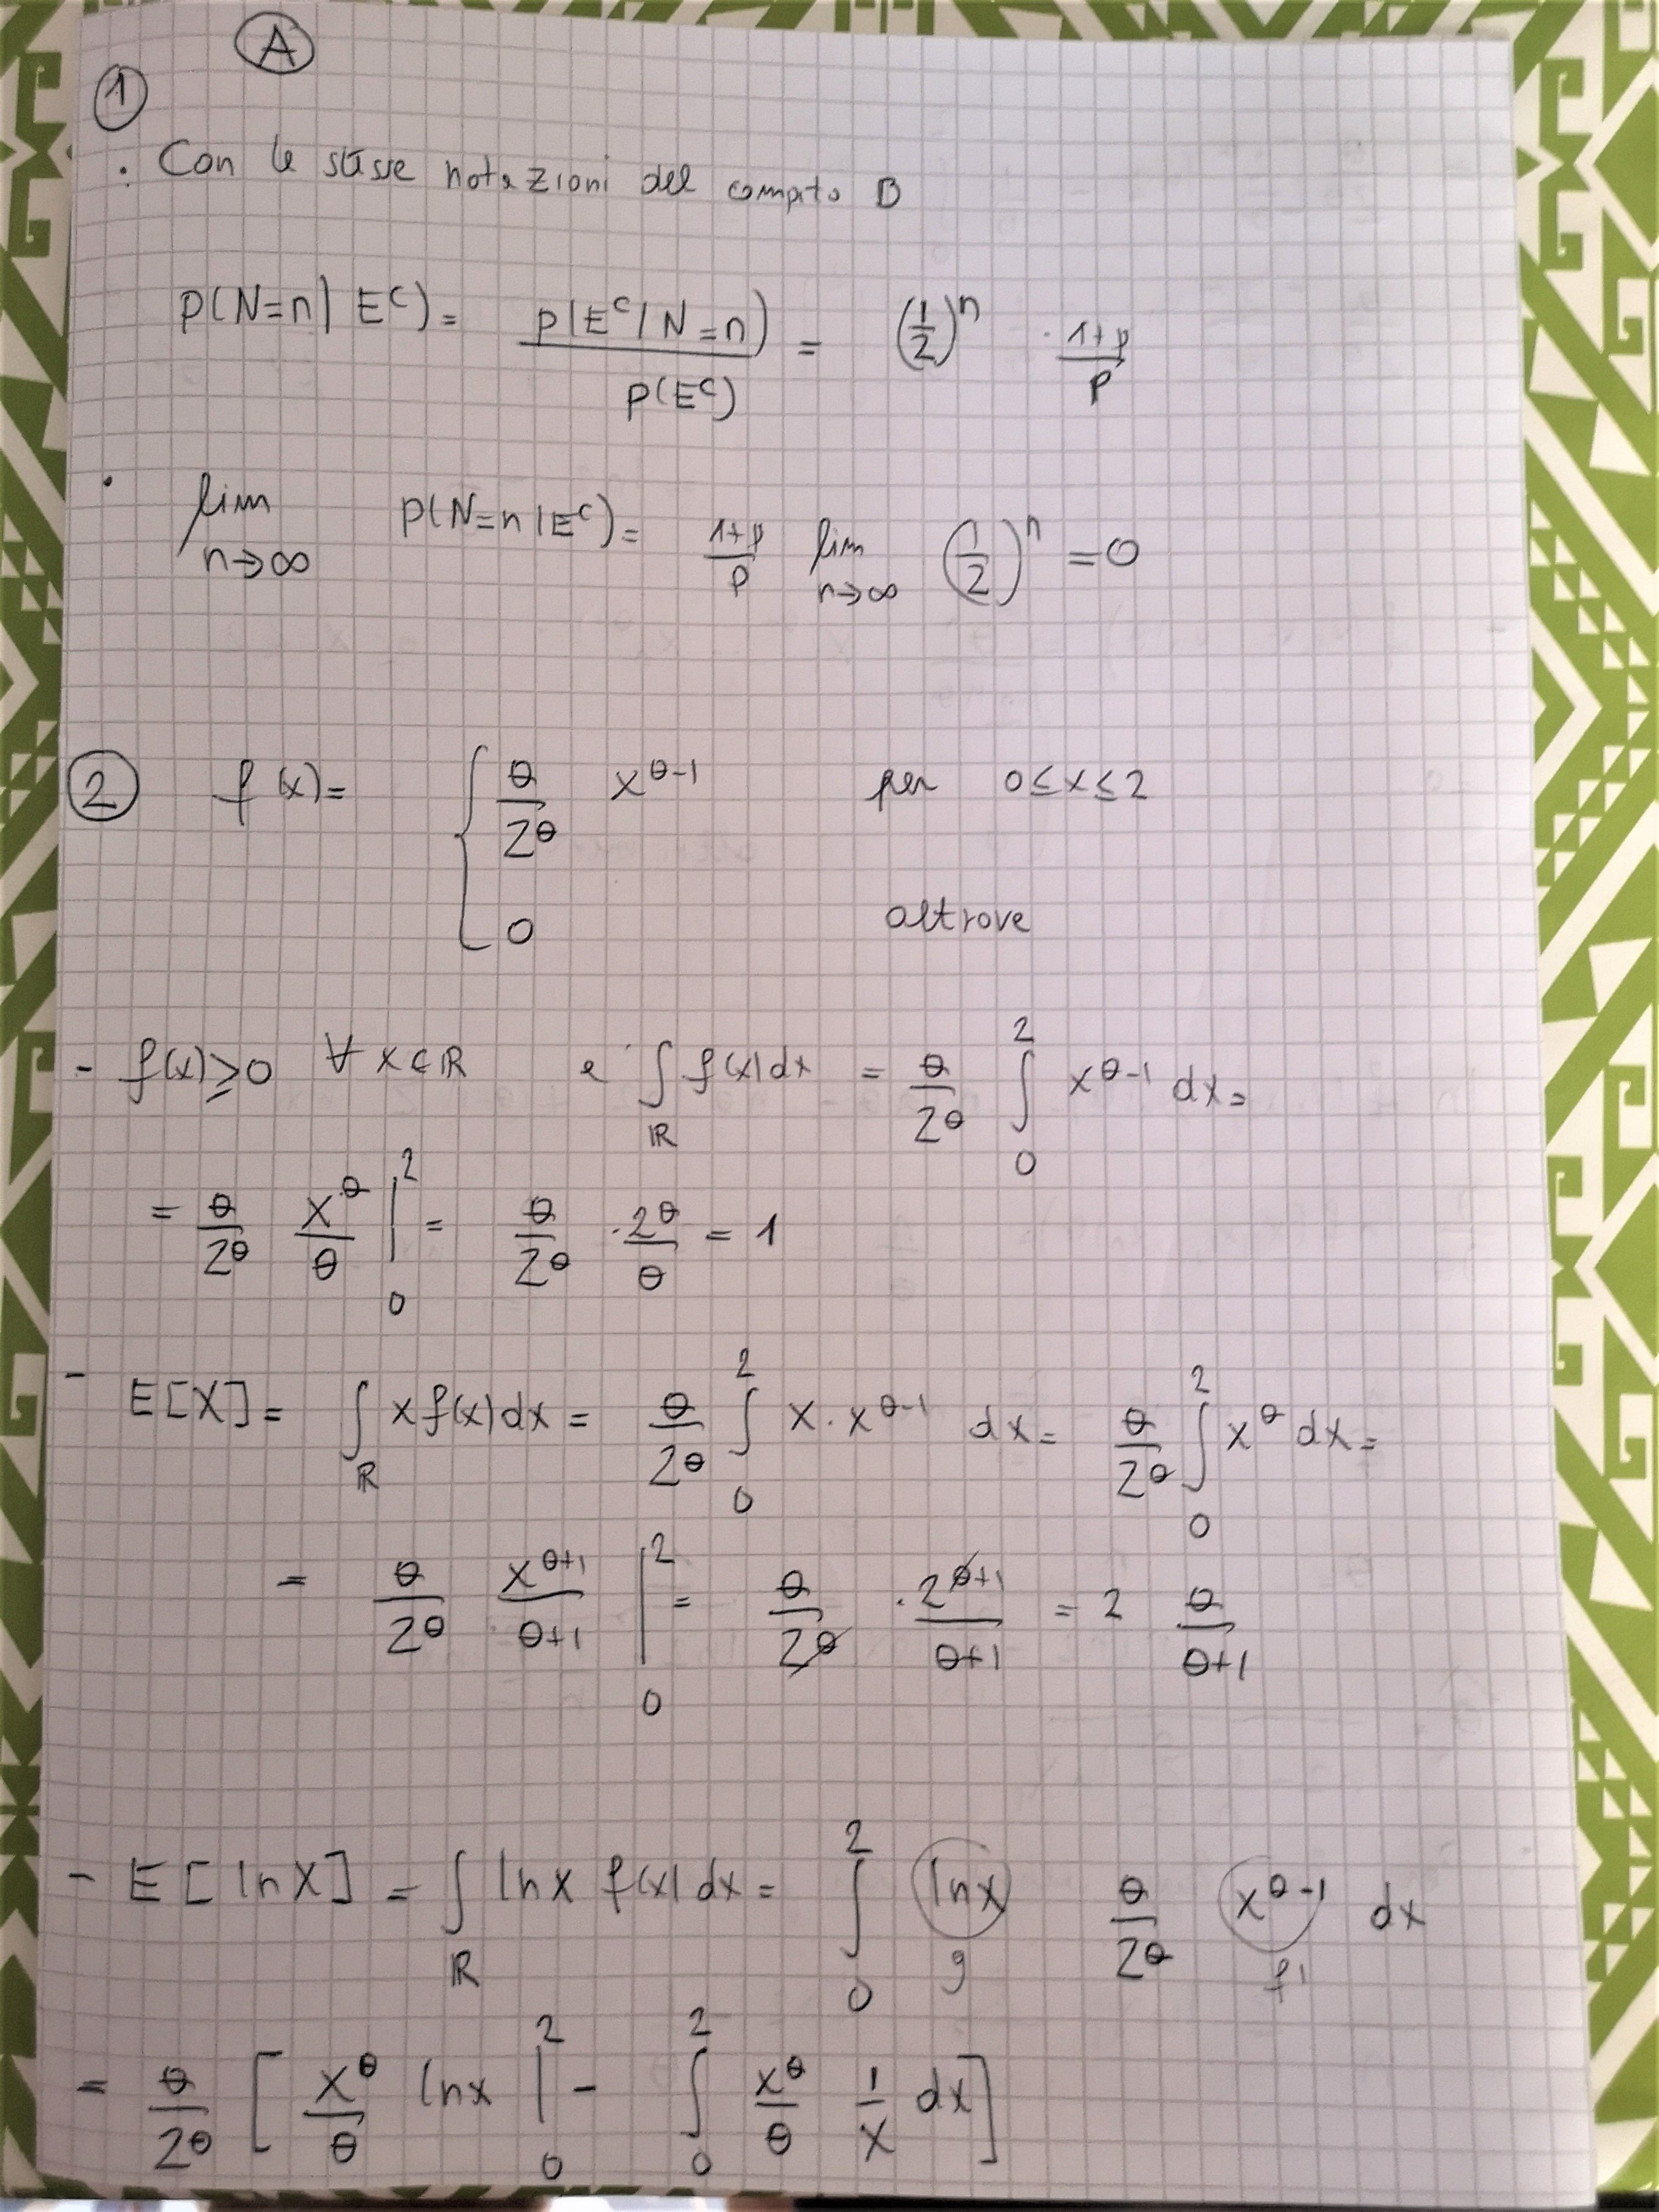 A
1
· Con le stesse notazioni del compito B
P(N=n | E^c) = P(E^c | N=n) / P(E^c) = (1/2)^n · (1+p)/p
· lim n→∞ P(N=n | E^c) = (1+p)/p lim n→∞ (1/2)^n = 0
2 f(x) = { θ/2^θ x^(θ-1) per 0≤x≤2
0 altrove
- f(x) ≥ 0 ∀ x∈ℝ e ∫_ℝ f(x) dx = θ/2^θ ∫_0^2 x^(θ-1) dx =
= θ/2^θ x^θ/θ |_0^2 = θ/2^θ · 2^θ/θ = 1
- E[X] = ∫_ℝ x f(x) dx = θ/2^θ ∫_0^2 x · x^(θ-1) dx = θ/2^θ ∫_0^2 x^θ dx =
= θ/2^θ x^(θ+1)/(θ+1) |_0^2 = θ/2^θ · 2^(θ+1)/(θ+1) = 2 θ/(θ+1)
- E[ln X] = ∫_ℝ ln x f(x) dx = ∫_0^2 ln x θ/2^θ x^(θ-1) dx
g f'
= θ/2^θ [ x^θ/θ ln x |_0^2 - ∫_0^2 x^θ/θ 1/x dx ]